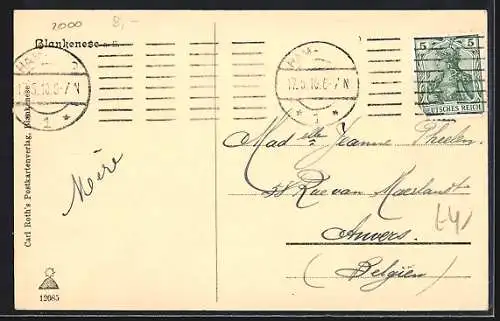 2000 8,-
Blankenese a. E.
HAM
17.5.10.6-7N
* 1 *
HAM-
17.5.10.6-7N
* 1 *
5 5
DEUTSCHES REICH
Carl Roth's Postkartenverlag, Blankenese.
Mère
Madelle Jeanne Theelen
58 Rue van Maerlandt
Anvers.
(Belgien)
12085